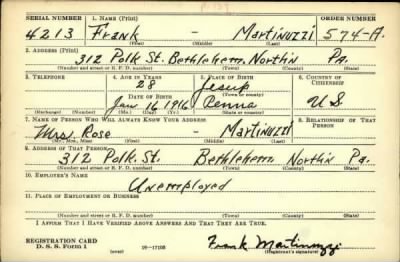 SERIAL NUMBER 1. NAME (Print) ORDER NUMBER
4213 Frank Martinuzzi 574-A.
(First) (Middle) (Last)
2. ADDRESS (Print)
312 Polk St. Bethlehem, Northn Pa.
(Number and street or R. F. D. number) (Town) (County) (State)
3. TELEPHONE 4. AGE IN YEARS 5. PLACE OF BIRTH 6. COUNTRY OF CITIZENSHIP
28 Jesup
DATE OF BIRTH (Town or county)
Jan 16 1916 Penna U S
(Exchange) (Number) (Mo.) (Day) (Yr.) (State or country)
7. NAME OF PERSON WHO WILL ALWAYS KNOW YOUR ADDRESS 8. RELATIONSHIP OF THAT PERSON
Mrs. Rose Martinuzzi
(Mr., Mrs., Miss) (First) (Middle) (Last)
9. ADDRESS OF THAT PERSON
312 Polk. St. Bethlehem Northn Pa.
(Number and street or R. F. D. number) (Town) (County) (State)
10. EMPLOYER'S NAME
Unemployed
11. PLACE OF EMPLOYMENT OR BUSINESS
(Number and street or R. F. D. number) (Town) (County) (State)
I AFFIRM THAT I HAVE VERIFIED ABOVE ANSWERS AND THAT THEY ARE TRUE.
REGISTRATION CARD
D. S. S. Form 1 (over) 16-17105 Frank Martinuzzi
(Registrant's signature)